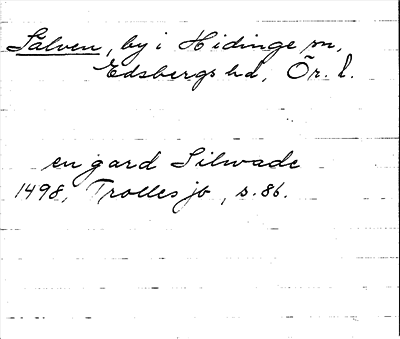 Sälven, by i Hidinge sn,
Edsbergs hd, Ör. l.
en gard Silwade
1498, Trolles jb, s. 86.